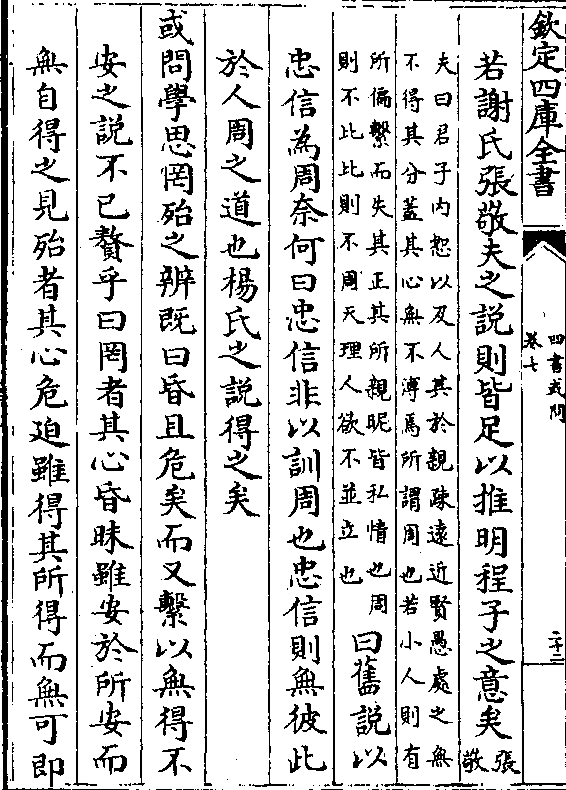 欽定四庫全書
四書或問
卷七
二十二
若謝氏張敬夫之説則皆足以推明程子之意矣張敬
夫曰君子内恕以及人其於親疎逺近賢愚處之無
不得其分葢其心無不溥焉所謂周也若小人則有
所偏繫而失其正其所親昵皆私情也周
則不比比則不周天理人欲不並立也
曰舊説以
忠信為周奈何曰忠信非以訓周也忠信則無彼此
於人周之道也楊氏之説得之矣
或問學思罔殆之辨既曰昏且危矣而又繫以無得不
安之説不已贅乎曰罔者其心昏昧雖安於所安而
無自得之見殆者其心危迫雖得其所得而無可即